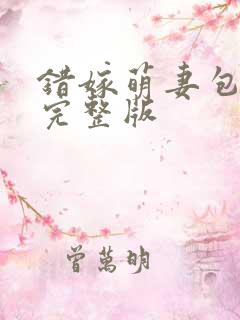 错嫁萌妻包
完整版
曾萬明